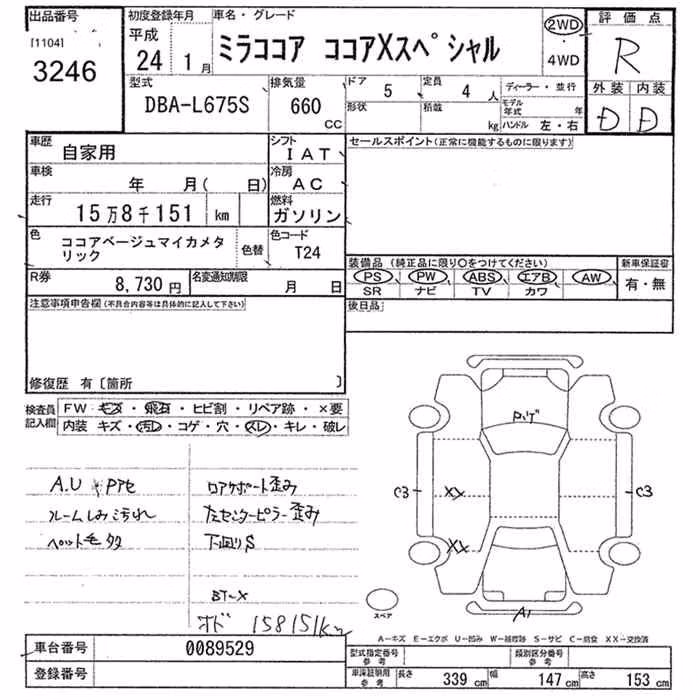 出品番号
[1104]
3246
初度登録年月
平成
24年 1月
車名・グレード
ミラココア ココアXスペシャル
2WD
・
4WD
評価点
R
外装 内装
D D
型式
DBA-L675S
排気量
660
CC
ドア 5
定員 4人
ディーラー・並行
形状
積載 kg
モデル年式 年
ハンドル 左・右
車歴
自家用
シフト
IAT
セールスポイント(正常に機能するものに限ります)
車検
年 月( 日)
冷房
AC
走行
15万8千151 km
燃料
ガソリン
色
ココアベージュマイカメタリック
色替
色コード
T24
装備品 (純正品に限り〇をつけてください)
新車保証書
PS PW ABS エアB AW
SR ナビ TV カワ
有・無
R券
8,730円
名変通知期限
月 日
後日品
注意事項申告欄(不具合内容等は具体的に記入して下さい)
修復歴 有〔箇所 〕
検査員記入欄
FW キズ・飛石・ヒビ割・リペア跡・×要
内装 キズ・汚レ・コゲ・穴・スレ・キレ・破レ
A.U
ルームしみ汚れ
ペット毛多
リアサポート歪み
左センターピラー歪み
下回りS
BT-X
オド 158151km
C3
XX
XX
C3
A1
スペア
A-キズ E-エクボ U-凹み W-補修跡 S-サビ C-腐食 XX-交換済
車台番号
0089529
登録番号
型式指定番号
参考
類別区分番号
参考
車深証明用
参考
長さ 339 cm
幅 147 cm
高さ 153 cm